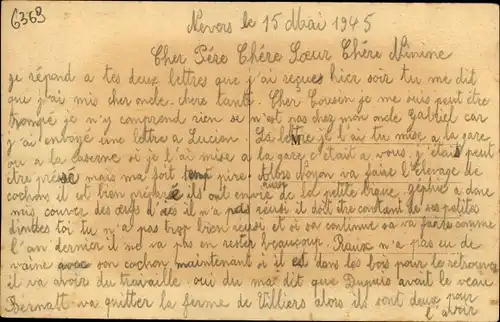 6363
Nevers le 15 Mai 1945
Cher Pére Chére Sœur Chére Ninine
je répond a tes deux lettres que j'ai reçues hier soir tu me dit
que j'ai mis cher oncle chere tante. Cher Cousin je me suis peut être
trompé je n'y comprend rien se n'est pas chez mon oncle Gabriel car
j'ai envoyé une lettre a Lucien. La lettre je l'ai tu mise a la gare
ou a la caserne si je l'ai mise a la gare c'était a vous. j'était peut
être pressé mais ma foit pire. Alors va faire l'élevage de
cochons il est bien préparé ils ont envie aussi de la petite a donc
mis couver des œufs d'oies il n'a pas reussi il doit être contant de ses petites
dindes toi tu n'a pas trop bien reussi et si sa continue sa va faire comme
l'an dernier il ne va pas en rester beaucoup. Raux n'a pas eu de
vaine avec son cochon maintenant si il est dans les bois pour le retrouver
il va avoir du travaille oui du ma dit que Dupuis avait le veau
va quitter la ferme de Villiers alors ils sont deux pour
l'avoir